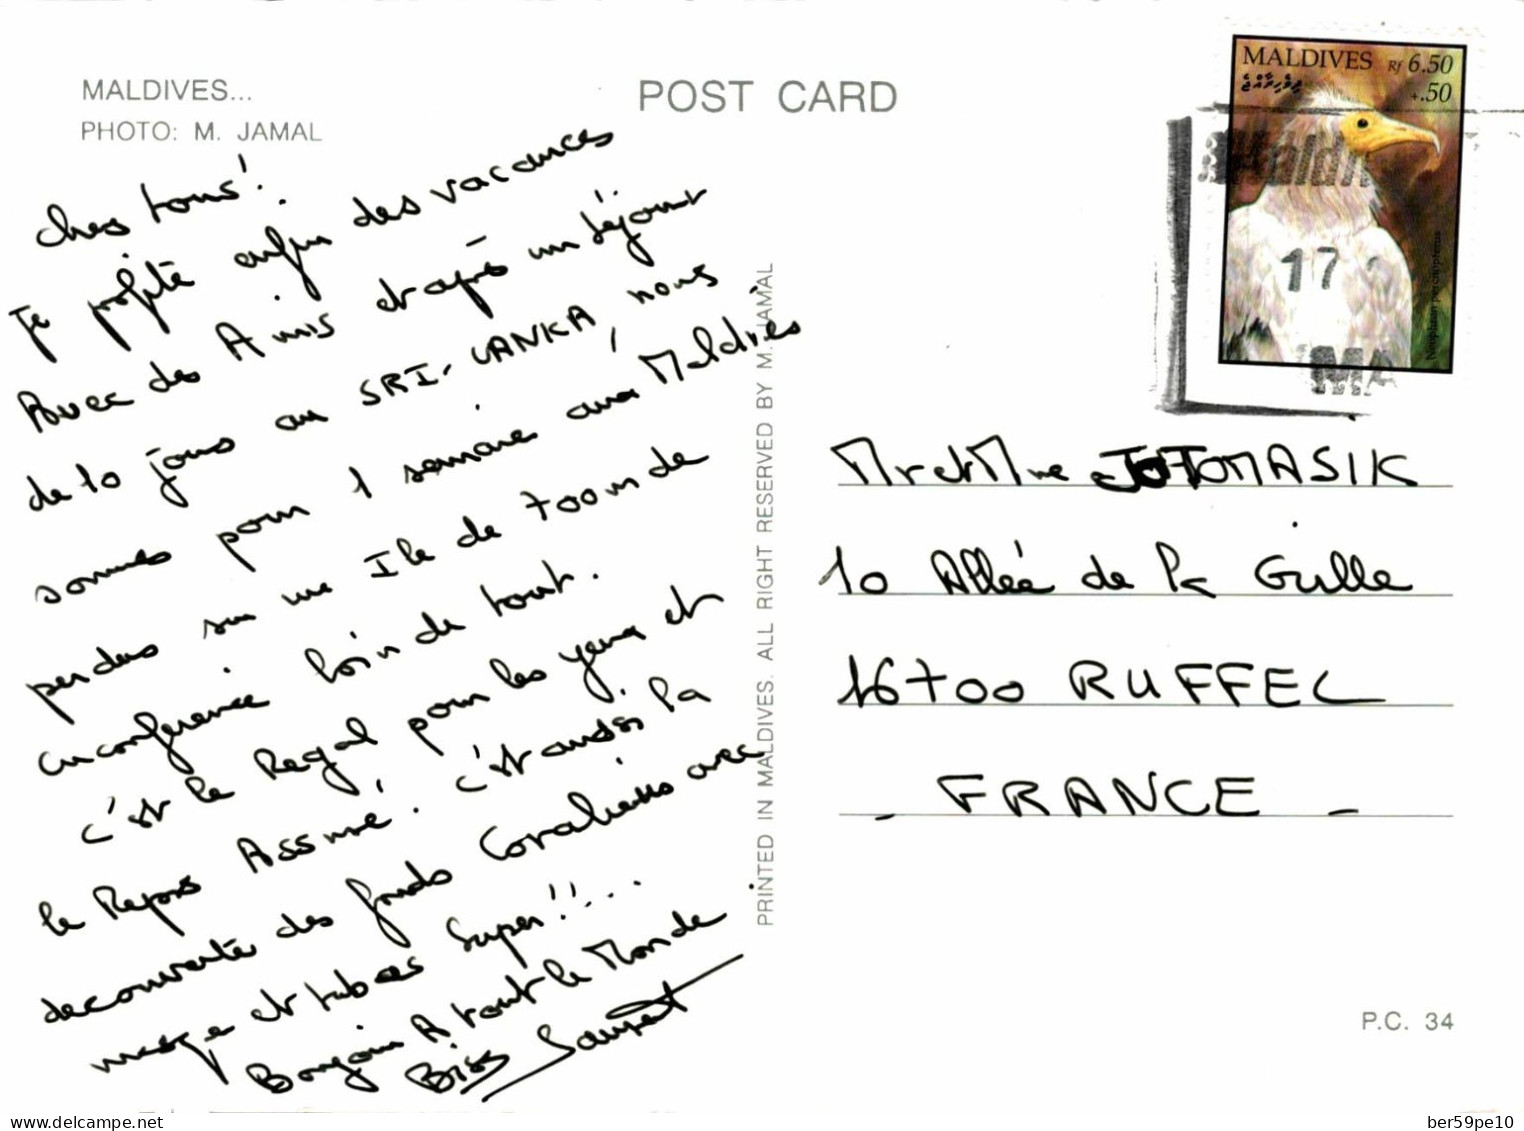 MALDIVES...
PHOTO: M. JAMAL
POST CARD
MALDIVES Rf 6.50
+.50
ދިވެހިރާއްޖެ
Neophron percnopterus
17
MA
chers tous!
Je profite enfin des vacances
Avec des Amis et après un séjour
de 10 jours au SRI-LANKA, nous
sommes pour 1 semaine aux Maldives
perdus sur une Ile de 700m de
circonférence loin de tout.
c'est le Regal pour les yeux et
le Repos Assuré. c'est aussi la
decouverte des fonds Coralliens avec
masque et tubas Super!!...
Bonjour A tout le Monde
Bises
PRINTED IN MALDIVES. ALL RIGHT RESERVED BY M. JAMAL
Mr et Mme TOMASIK
10 Allée de la
16700 RUFFEC
- FRANCE -
P.C. 34
delcampe.net
ber59pe10